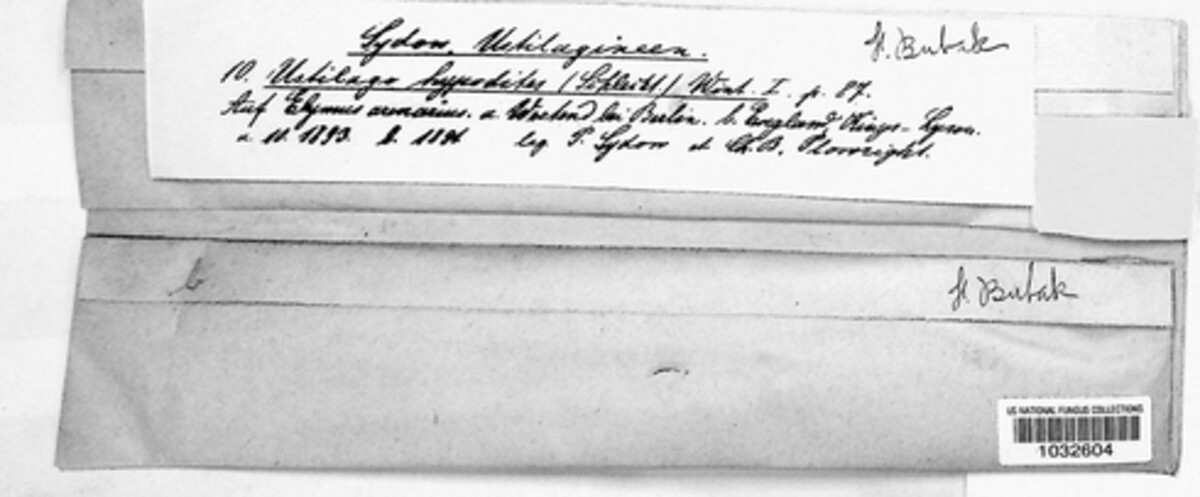 Sydow, Ustilagineen.
F. Bubak
10. Ustilago hypodites (Schlecht.) Wint. I. p. 87.
Auf Elymus arenarius. a Westend bei Berlin. b. England, Kings-Lynn.
a. 10. 1893. b. 1891 leg. P. Sydow et Ch. B. Plowright.
b.
F. Bubak
US NATIONAL FUNGUS COLLECTIONS
1032604